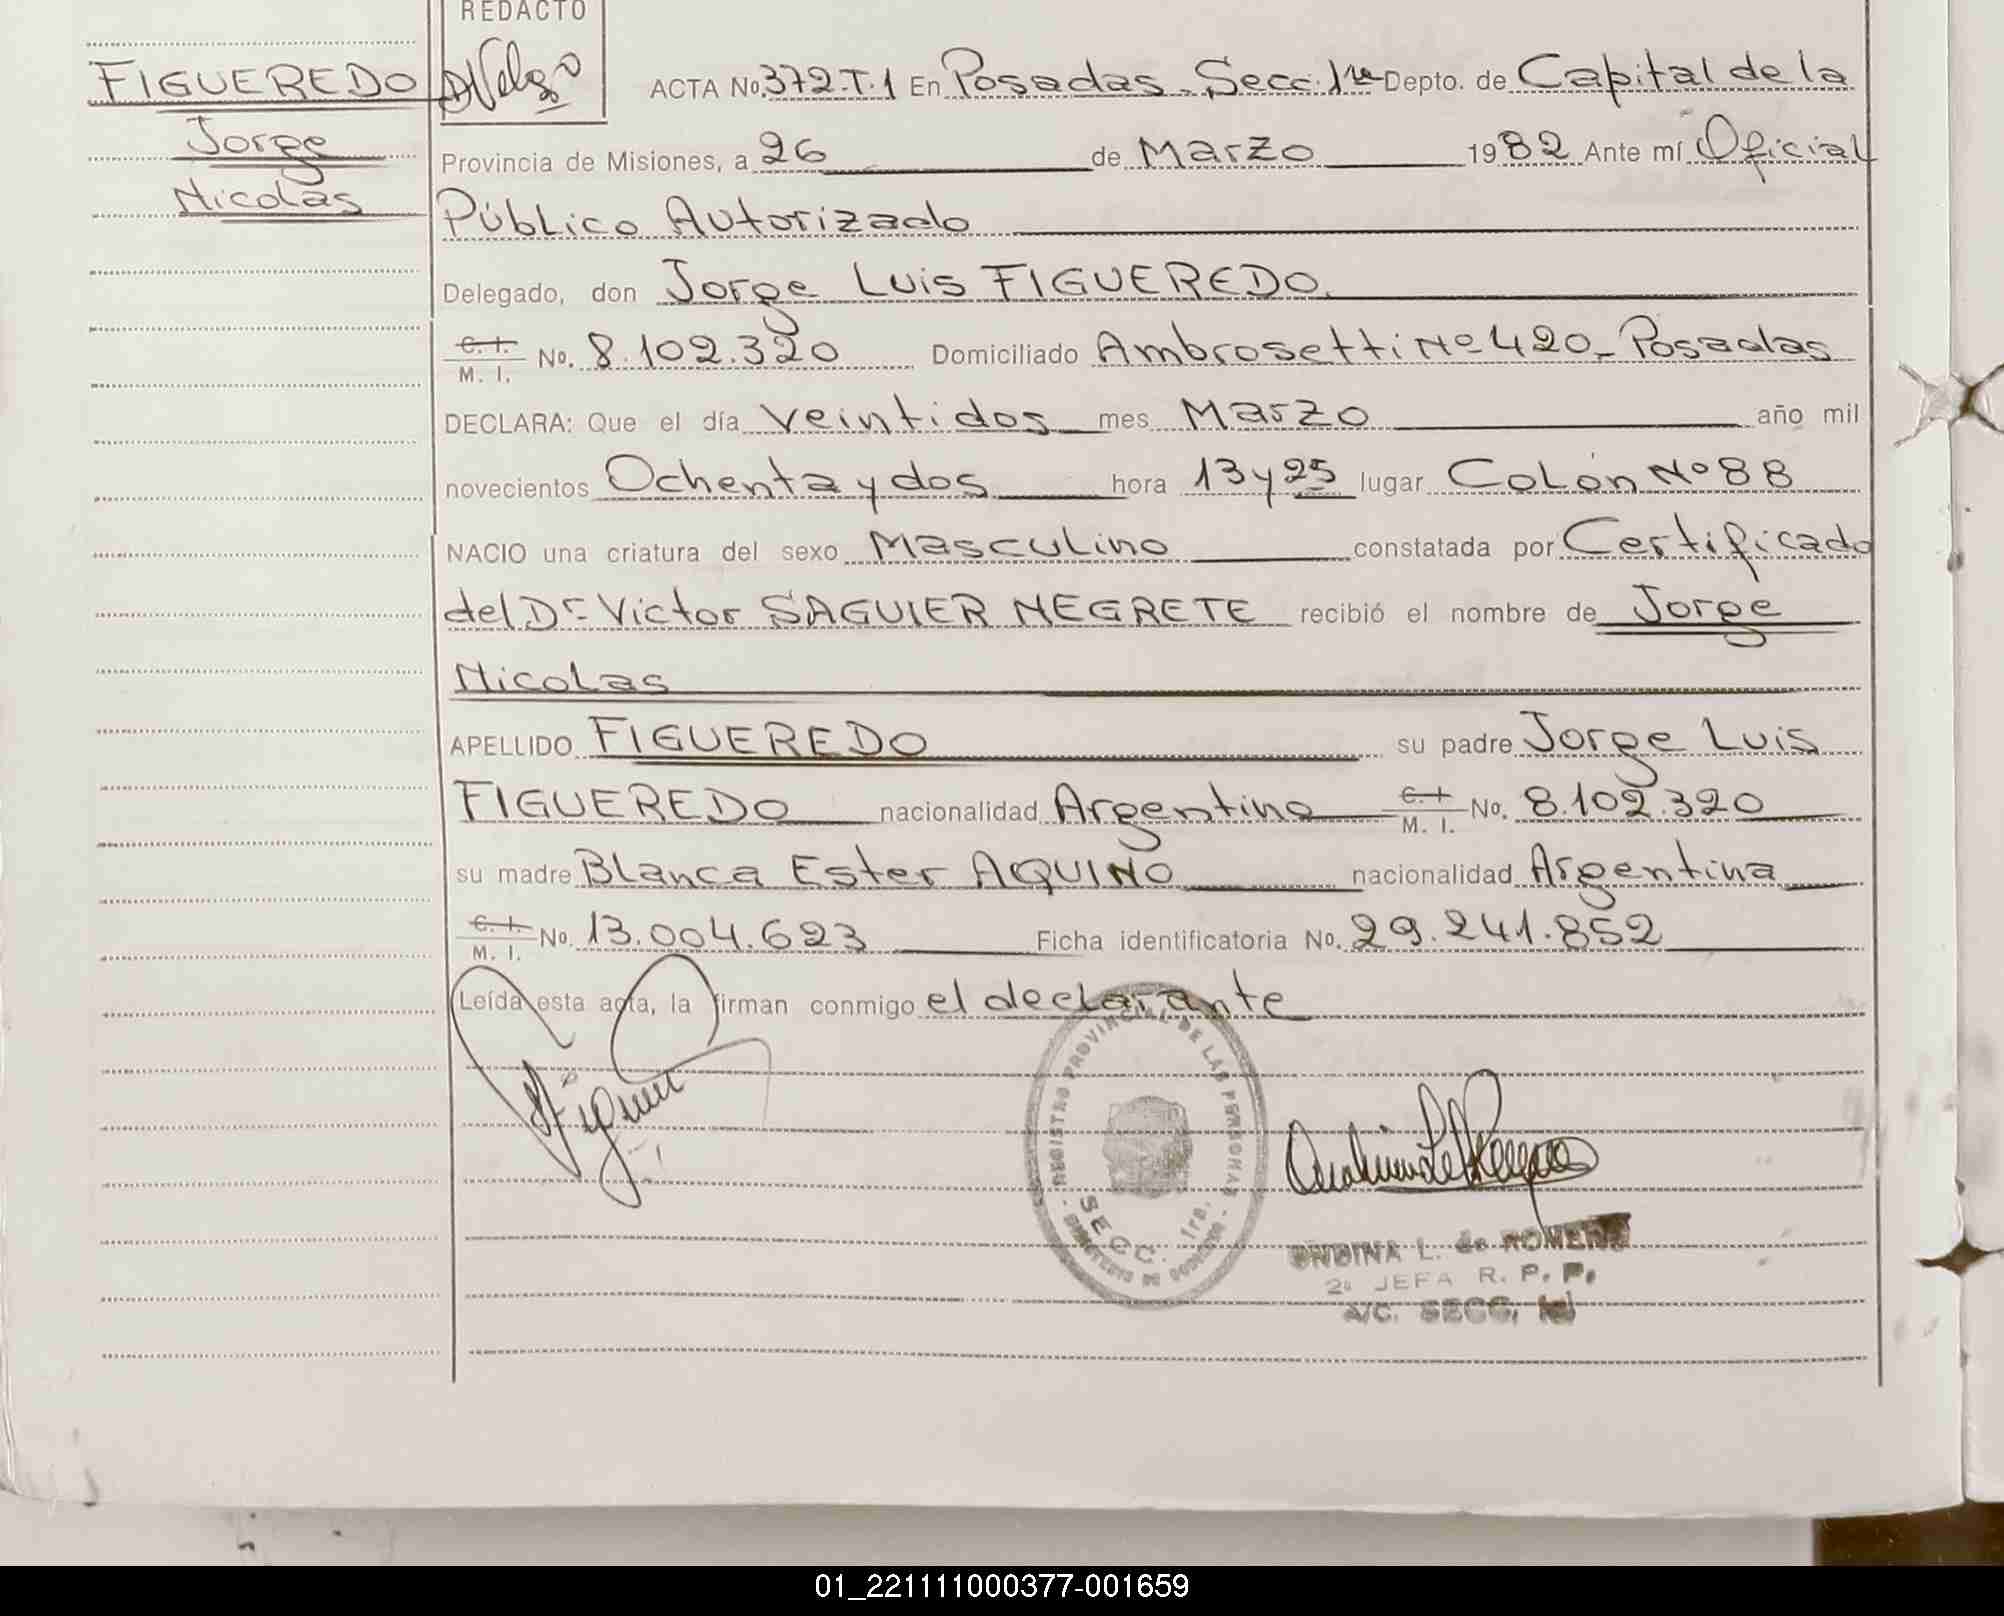 REDACTO
FIGUEREDO
Jorge
Nicolas
ACTA No. 372.T.1 En Posadas. Secc. 1ra Depto. de Capital de la
Provincia de Misiones, a 26 de Marzo 1982 Ante mí Oficial
Público Autorizado
Delegado, don Jorge Luis FIGUEREDO.
C. I. / M. I. No. 8.102.320 Domiciliado Ambrosetti Nº 420_ Posadas
DECLARA: Que el día veintidos mes Marzo año mil
novecientos Ochenta y dos hora 13 y 25 lugar Colón Nº 88
NACIO una criatura del sexo Masculino constatada por Certificado
del Dr Victor SAGUIER NEGRETE recibió el nombre de Jorge
Nicolas
APELLIDO FIGUEREDO su padre Jorge Luis
FIGUEREDO nacionalidad Argentino C. I. / M. I. No. 8.102.320
su madre Blanca Ester AQUINO nacionalidad Argentina
C. I. / M. I. No. 13.004.623 Ficha identificatoria No. 29.241.852
Leída esta acta, la firman conmigo el declarante
REGISTRO PROVINCIAL DE LAS PERSONAS
SECC. 1ra.
ONDINA L. de ROMERO
2a JEFA R. P. P.
A/C. SECC.
01_221111000377-001659